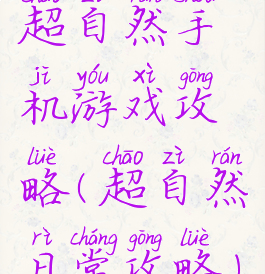 超自然手
jī yóu xì gōng
机游戏攻
lüè chāo zì rán
略(超自然
rì cháng gōng lüè
日常攻略)